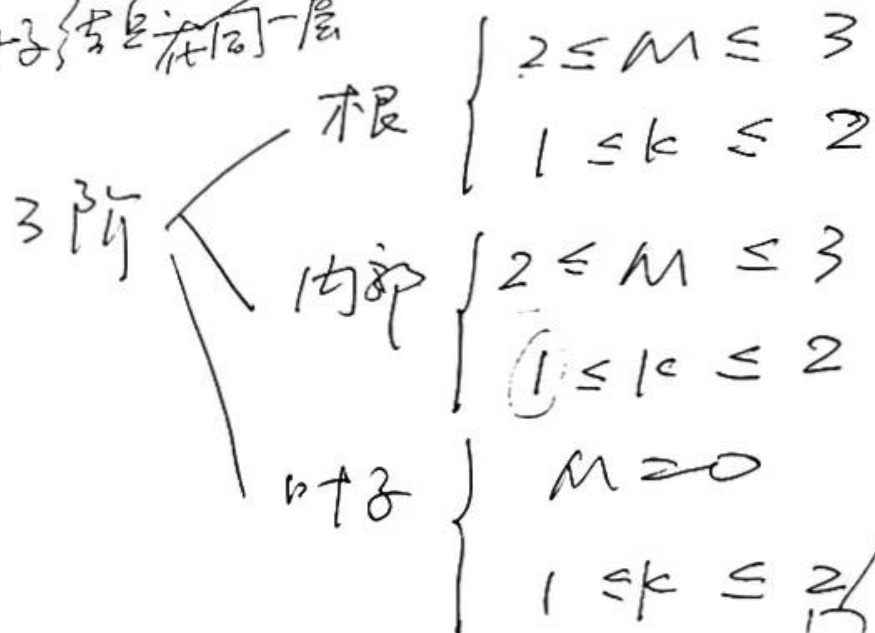 子结点在同一层
根 2 ≤ M ≤ 3
1 ≤ k ≤ 2
3阶
内部 2 ≤ M ≤ 3
1 ≤ k ≤ 2
叶子 M = 0
1 ≤ k ≤ 2